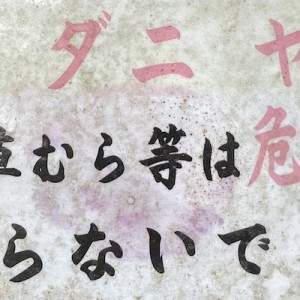 ダニ ヤ
危
草むら等は
らないで